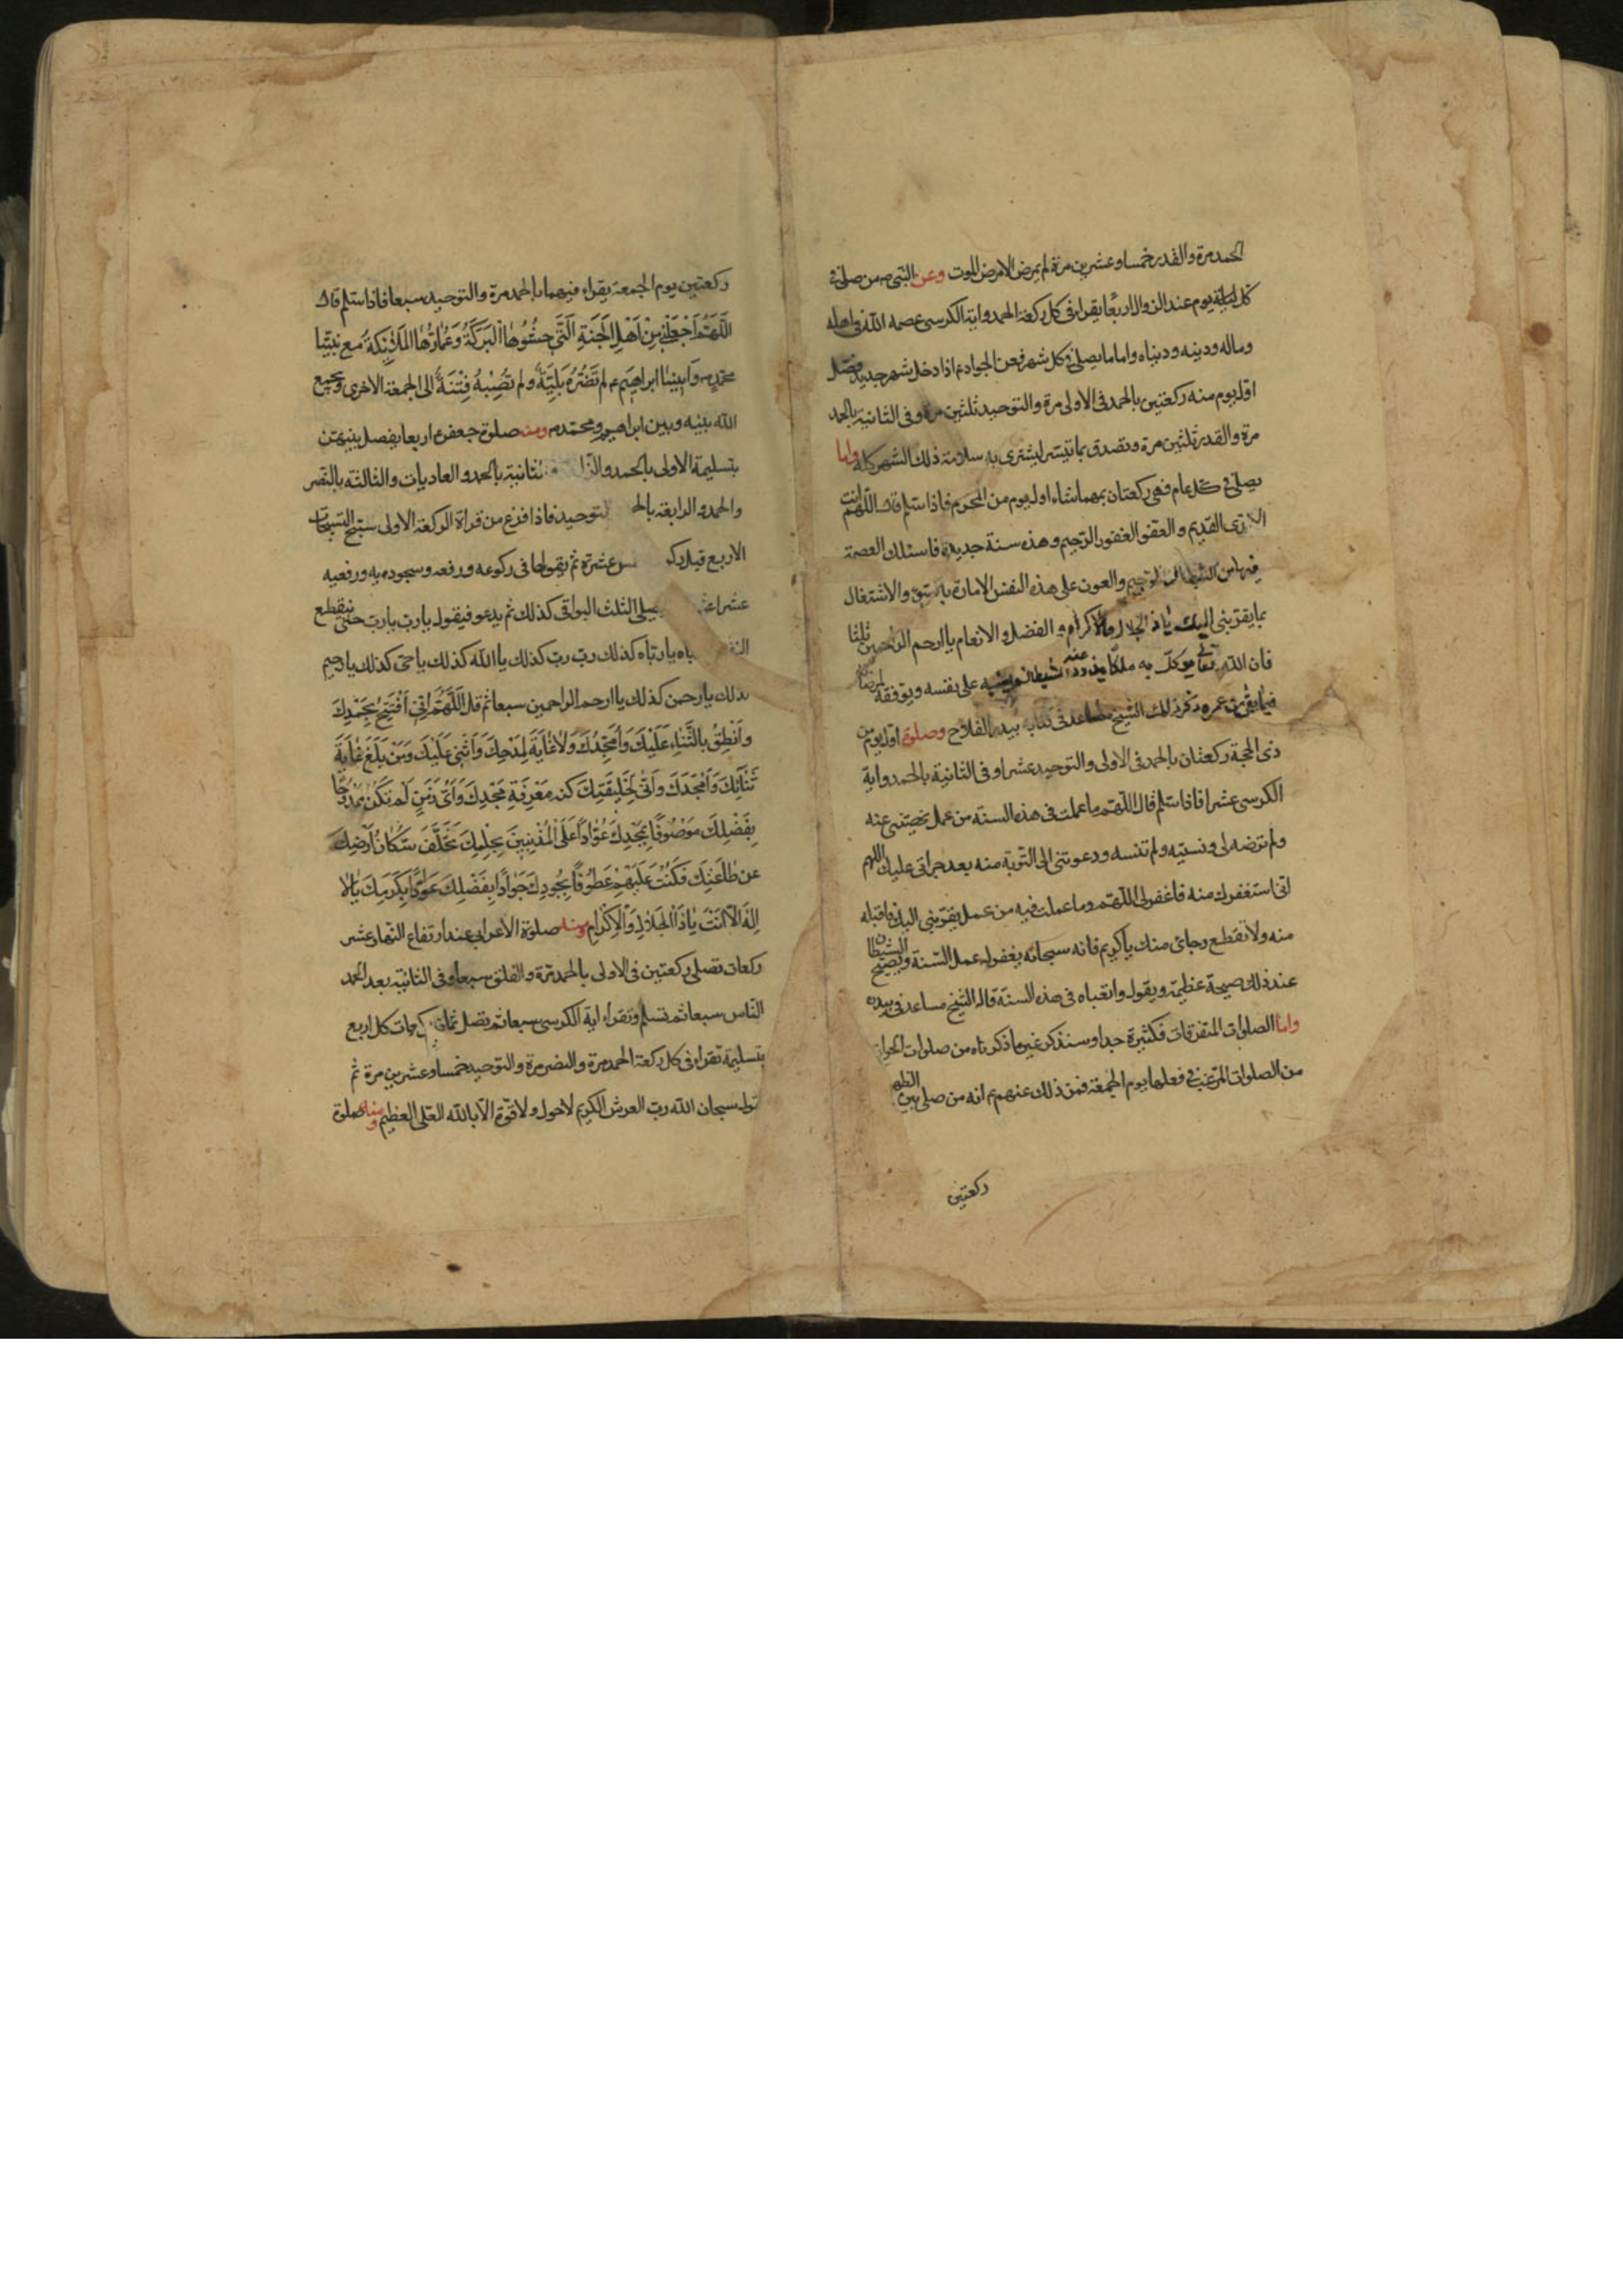 الحمد مرة والقدر خمسا وعشرين مرة لم يمرض الا مرض الموت وعن النبي ص من صلى في
كل ليلة يوم عند الزوال اربعا يقرا في كل ركعة الحمد واية الكرسي عصمه الله في اهله
وماله ودينه ودنياه واما ما يصلى في كل شهر فعن الجواد ع اذا دخل شهر جديد فصل
اول يوم منه ركعتين بالحمد في الاولى مرة والتوحيد ثلثين مرة وفي الثانية بالحمد
مرة والقدر ثلثين مرة وتصدق بما تيسر ليشترى به سلامة ذلك الشهر كله واما
يصلى في كل عام فهي ركعتان بمهما شاء اول يوم من المحرم فاذا سلم قال اللهم انت
القديم والعفو الغفور الرحيم وهذه سنة جديدة فاسئلك العصمة
فيها من الشيطان الرجيم والعون على هذه النفس الامارة بالسوء والاشتغال
بما يقربني اليك يا ذا الجلال والاكرام والفضل والانعام يا ارحم الراحمين ثلثا
فان الله تعالى يوكل به ملكا يذود عنه الشيطان على نفسه ويوفقه لمرضاته
فيما بقي من عمره ذكر ذلك الشيخ مساعد في كتابه بيدر الفلاح وصلوة اول يوم من
ذي الحجة ركعتان بالحمد في الاولى والتوحيد عشرا وفي الثانية بالحمد واية
الكرسي عشرا فاذا سلم قال اللهم ما عملت في هذه السنة من عمل نهيتني عنه
ولم ترضه لي ونسيته ولم تنسه ودعوتني الى التوبة منه بعد جراتي عليك اللهم
اني استغفرك منه فاغفر لي اللهم وما عملت فيه من عمل يقربني اليك فاقبله
منه ولا تقطع رجائ منك يا كريم فانه سبحانه يغفر له عمل السنة ويصيح الشيطان
عند ذلك صيحة عظيمة ويقول واتعباه في هذه السنة قاله الشيخ مساعد في بيدره
واما الصلوات المتفرقات فكثيرة جدا وسنذكر غير ما ذكرناه من صلوات الحوائج
من الصلوات المرغب في فعلها يوم الجمعة فمن ذلك عنهم ع انه من صلى بين الظهر
ركعتين
ركعتين يوم الجمعة يقراء فيهما بالحمد مرة والتوحيد سبعا فاذا سلم قال
اللَّهُمَّ اجْعَلْنِي مِنْ اَهْلِ الْجَنَّةِ الَّتِي حَشْوُهَا الْبَرَكَةُ وَعُمَّارُهَا الْمَلَائِكَةُ مع نبينا
محمد ص وابينا ابراهيم ع لم تَضُرُّه بَلِيَّةٌ ولم تُصِبْهُ فِتْنَةٌ الى الجمعة الاخرى ويجمع
الله بينه وبين ابراهيم ومحمد ص ومنه صلوة جعفر ع اربعا يفصل بينهن
بتسليمة الاولى بالحمد والثانية بالحمد والعاديات والثالثة بالنصر
والحمد والرابعة التوحيد فاذا فرغ من قراة الركعة الاولى سبح التسبيحات
الاربع قبل عشرة ثم يقولها في ركوعه ورفعه وسجوديه ورفعيه
عشرا الثلث البواقي كذلك ثم يدعو فيقول يا رب يا رب حتى ينقطع
يا رباه كذلك رب رب كذلك يا الله كذلك يا حي كذلك يا رحيم
كذلك يا رحمن كذلك يا ارحم الراحمين سبعا ثم قل اَللَّهُمَّ اِنِّي اَفْتَتِحُ بِحَمْدِكَ
وانْطِقُ بِالثَّنَاءِ عَلَيْكَ وَاُمَجِّدُكَ وَلَا غَايَةَ لِمَدْحِكَ وَاُثْنِي عَلَيْكَ وَمَنْ يَبْلُغُ غَايَةَ
ثَنَائِكَ وَاَمْجَدَكَ وَاَنَّى لِخَلِيقَتِكَ كنه مَعْرِفَةِ مَجْدِكَ وَاَيُّ زَمَنٍ لَمْ تَكُنْ مَمْدُوحًا
بِفَضْلِكَ مَوْصُوفًا بِمَجْدِكَ عَوَّادًا عَلَى الْمُذْنِبِينَ بِحِلْمِكَ تَخَلَّفَ سُكَّانُ اَرْضِكَ
عن طَاعَتِكَ فَكُنْتَ عَلَيْهِمْ عَطُوفًا بِجُودِكَ جَوَادًا بِفَضْلِكَ عَوَّادًا بِكَرَمِكَ يَا لَا
اِلٰهَ اِلَّا اَنْتَ يَا ذَا الْجَلَالِ وَالْاِكْرَامِ ومنه صلوة الاعرابي عند ارتفاع النهار عشر
ركعات تصلي ركعتين في الاولى بالحمد مرة والفلق سبعا وفي الثانية بعد الحمد
الناس سبعا ثم تسلم وتقراء اية الكرسي سبعا ثم تصل ثمان ركعات كل اربع
بتسليمة تقراء في كل ركعة الحمد مرة والنصر مرة والتوحيد خمسا وعشرين مرة ثم
تقول سبحان الله رب العرش الكريم لا حول ولا قوة الا بالله العلي العظيم ومنه صلوة